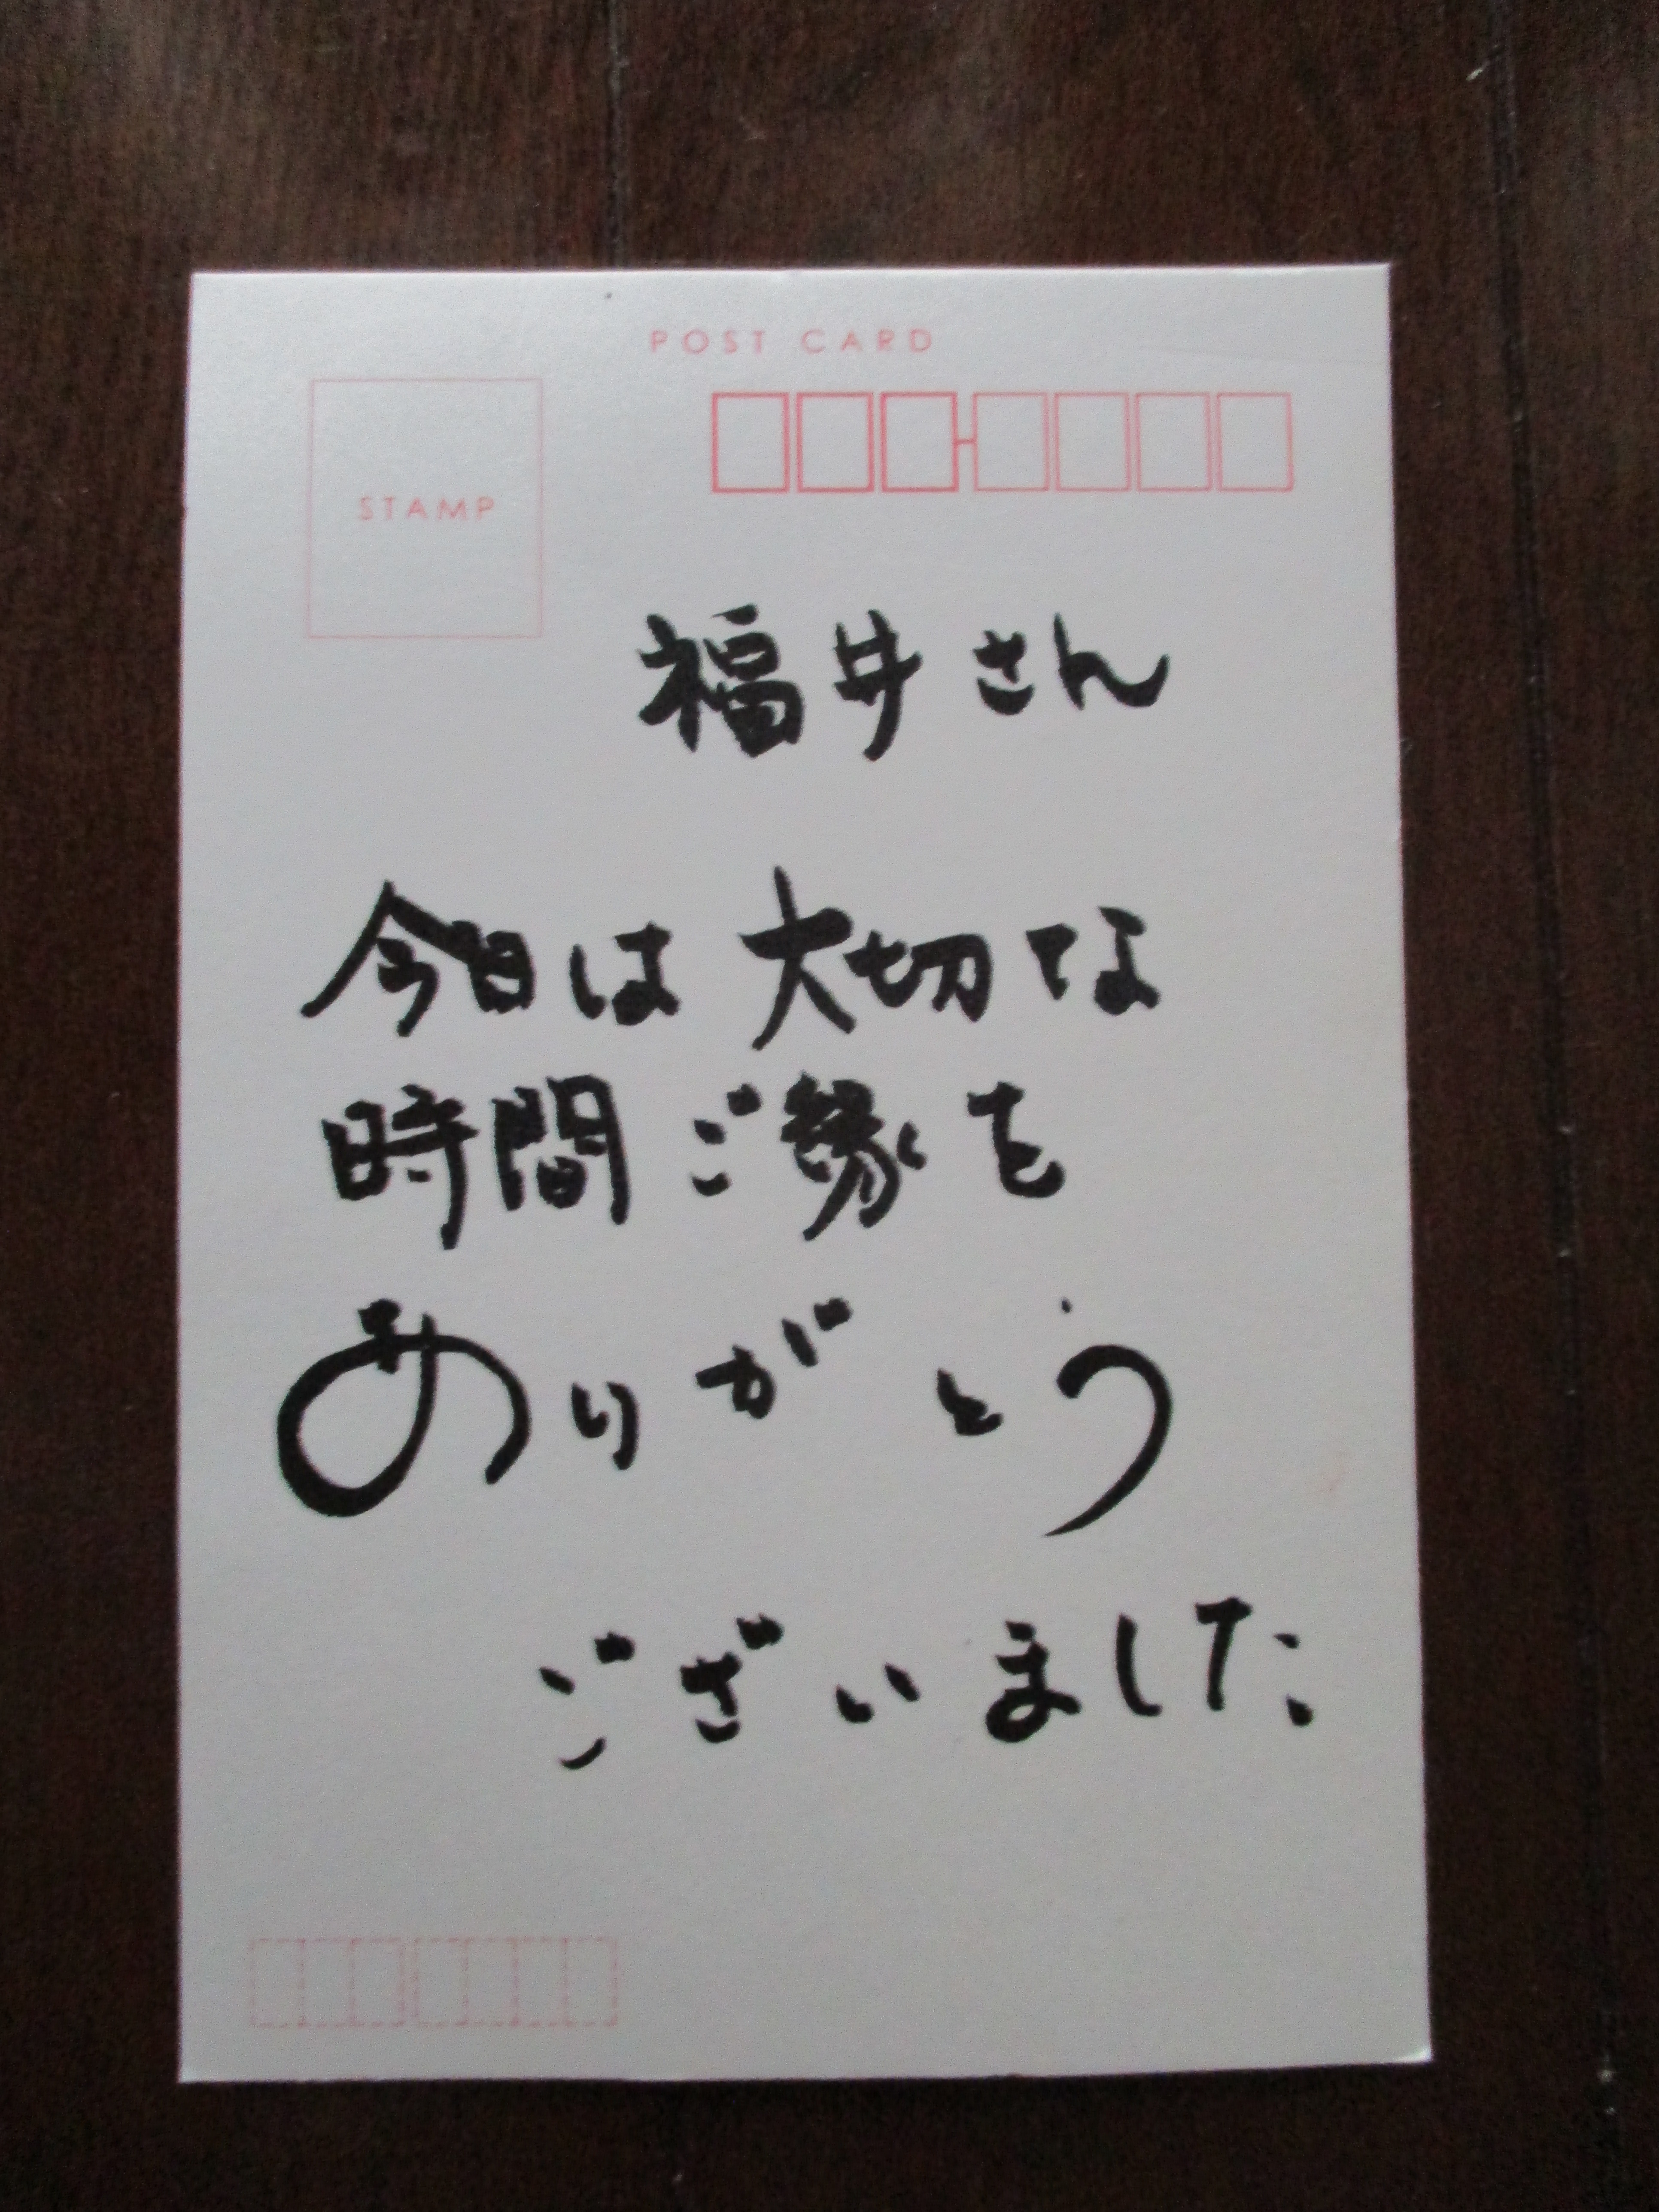 POST CARD
STAMP
福井さん
今日は大切な
時間ご縁を
ありがとう
ございました